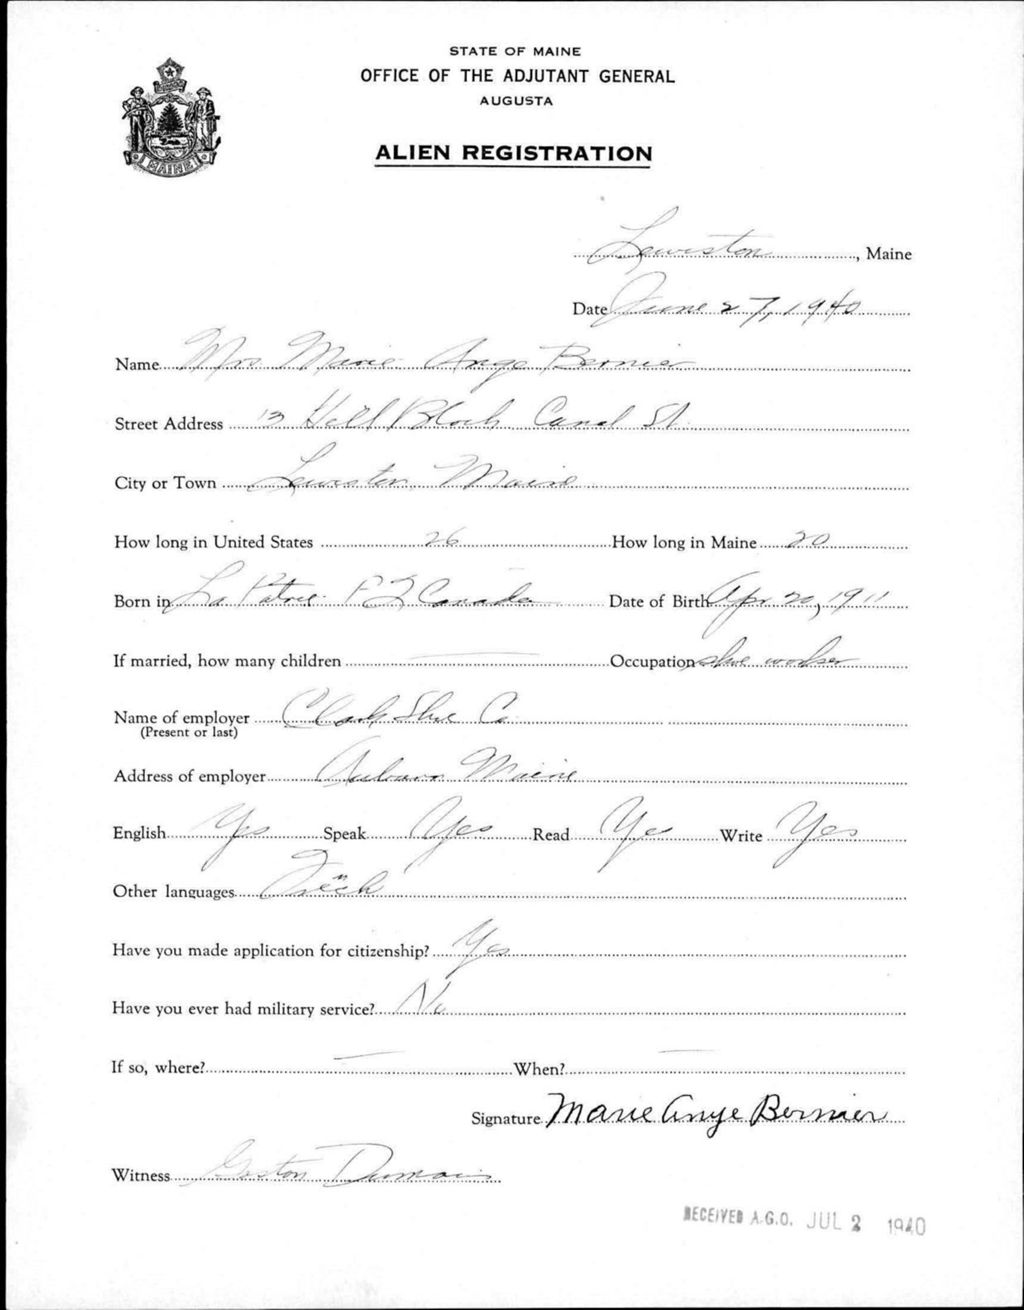 STATE OF MAINE
OFFICE OF THE ADJUTANT GENERAL
AUGUSTA
ALIEN REGISTRATION
MAINE
Lewiston, Maine
Date June 27, 1940
Name Mrs Marie Ange Bernier
Street Address 13 Hill Block Canal St.
City or Town Lewiston, Maine
How long in United States 26 How long in Maine 20
Born in La Patrie P Q Canada Date of Birth Apr 20, 1911
If married, how many children — Occupation shoe worker
Name of employer Clark Shoe Co
(Present or last)
Address of employer Auburn Maine
English Yes Speak Yes Read Yes Write Yes
Other languages Frech n
Have you made application for citizenship? Yes
Have you ever had military service? No
If so, where? — When? —
Signature Marie Ange Bernier
Witness Gaston Dumais
RECEIVED A.G.O. JUL 2 1940